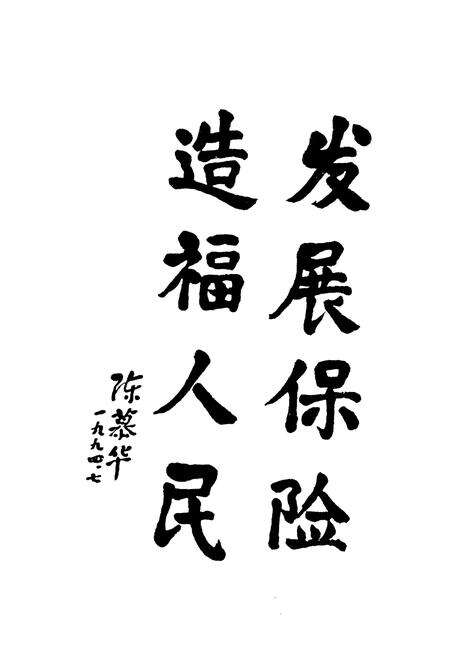 发展保险
造福人民
陈慕华
一九九四·七